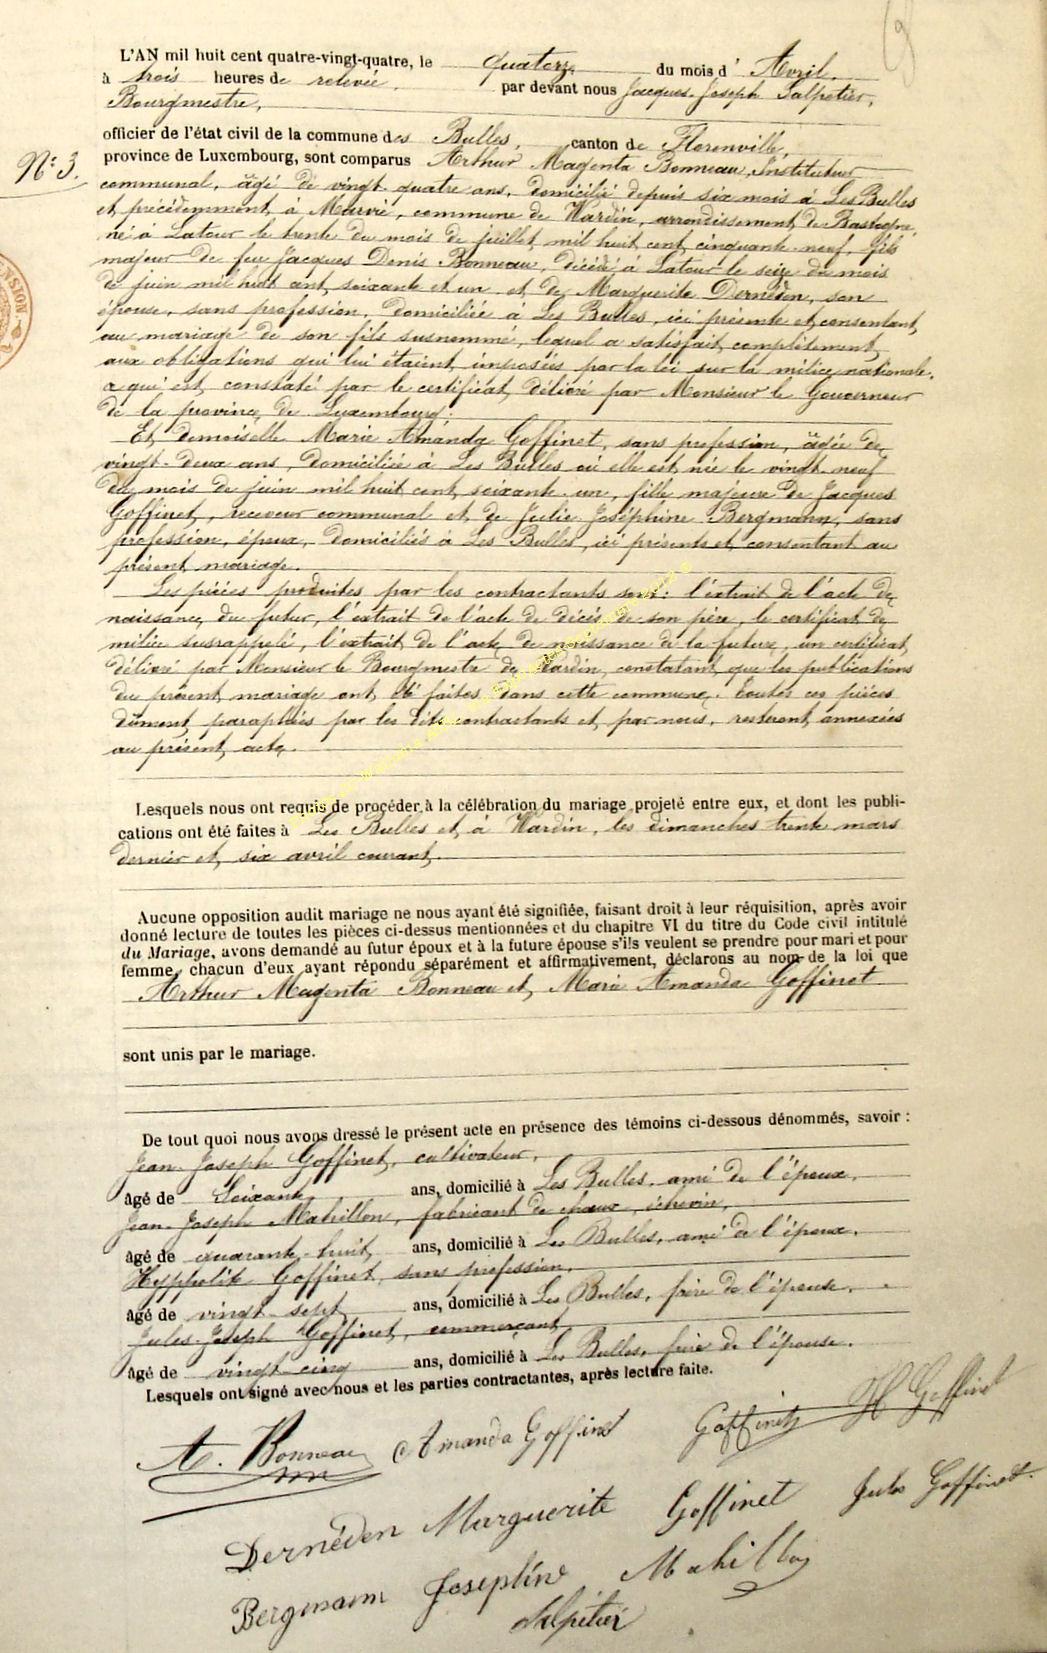 L'AN mil huit cent quatre-vingt-quatre, le quatorze du mois d' Avril,
à trois heures de relevée, par devant nous Jacques-Joseph Salpetier,
Bourgmestre,
officier de l'état civil de la commune des Bulles, canton de Florenville,
N° 3.
province de Luxembourg, sont comparus Arthur Magenta Bonneau, Instituteur
communal, âgé de vingt-quatre ans, domicilié depuis six mois à Les Bulles
et précédemment à Marvie, commune de Wardin, arrondissement de Bastogne,
né à Latour le trente du mois de juillet mil huit cent cinquante-neuf, fils
majeur de feu Jacques Denis Bonneau, décédé à Latour le seize du mois
de juin mil huit cent soixante et un et de Marguerite Dernéden, son
épouse, sans profession, domiciliée à Les Bulles, ici présente et consentant
au mariage de son fils susnommé, lequel a satisfait complètement
aux obligations qui lui étaient imposées par la loi sur la milice nationale,
a qui est constaté par le certificat délivré par Monsieur le Gouverneur
de la province de Luxembourg.
Et demoiselle Marie Amanda Goffinet, sans profession, âgée de
vingt-deux ans, domiciliée à Les Bulles où elle est née le vingt-neuf
du mois de juin mil huit cent soixante-un, fille majeure de Jacques
Goffinet, receveur communal et de Julie Joséphine Bergmann, sans
profession, époux, domiciliés à Les Bulles, ici présents et consentant au
présent mariage.
Les pièces produites par les contractants sont: l'extrait de l'acte de
naissance du futur, l'extrait de l'acte de décès de son père, le certificat de
milice susrappelé, l'extrait de l'acte de naissance de la future, un certificat
délivré par Monsieur le Bourgmestre de Wardin, constatant que les publications
du présent mariage ont été faites dans cette commune. Toutes ces pièces
dûment paraphées par les dits contractants et par nous, resteront annexées
au présent acte.
Lesquels nous ont requis de procéder à la célébration du mariage projeté entre eux, et dont les publi-
cations ont été faites à Les Bulles et à Wardin, les dimanches trente mars
dernier et six avril courant.
Aucune opposition audit mariage ne nous ayant été signifiée, faisant droit à leur réquisition, après avoir
donné lecture de toutes les pièces ci-dessus mentionnées et du chapitre VI du titre du Code civil intitulé
du Mariage, avons demandé au futur époux et à la future épouse s'ils veulent se prendre pour mari et pour
femme, chacun d'eux ayant répondu séparément et affirmativement, déclarons au nom de la loi que
Arthur Magenta Bonneau et Marie Amanda Goffinet
sont unis par le mariage.
De tout quoi nous avons dressé le présent acte en présence des témoins ci-dessous dénommés, savoir :
Jean-Joseph Goffinet, cultivateur,
âgé de Soixante ans, domicilié à Les Bulles, ami de l'époux,
Jean-Joseph Mahillon, fabricant de chaux, échevin,
âgé de quarante-huit ans, domicilié à Les Bulles, ami de l'époux,
Hyppolite Goffinet, sans profession,
âgé de vingt-sept ans, domicilié à Les Bulles, frère de l'épouse,
Jules-Joseph Goffinet, commerçant,
âgé de vingt-cinq ans, domicilié à Les Bulles, frère de l'épouse.
Lesquels ont signé avec nous et les parties contractantes, après lecture faite.
A. Bonneau Amanda Goffinet Goffinet H Goffinet
Dernéden Marguerite Goffinet Jules Goffinet
Bergmann Joséphine Mahillon
Salpetier